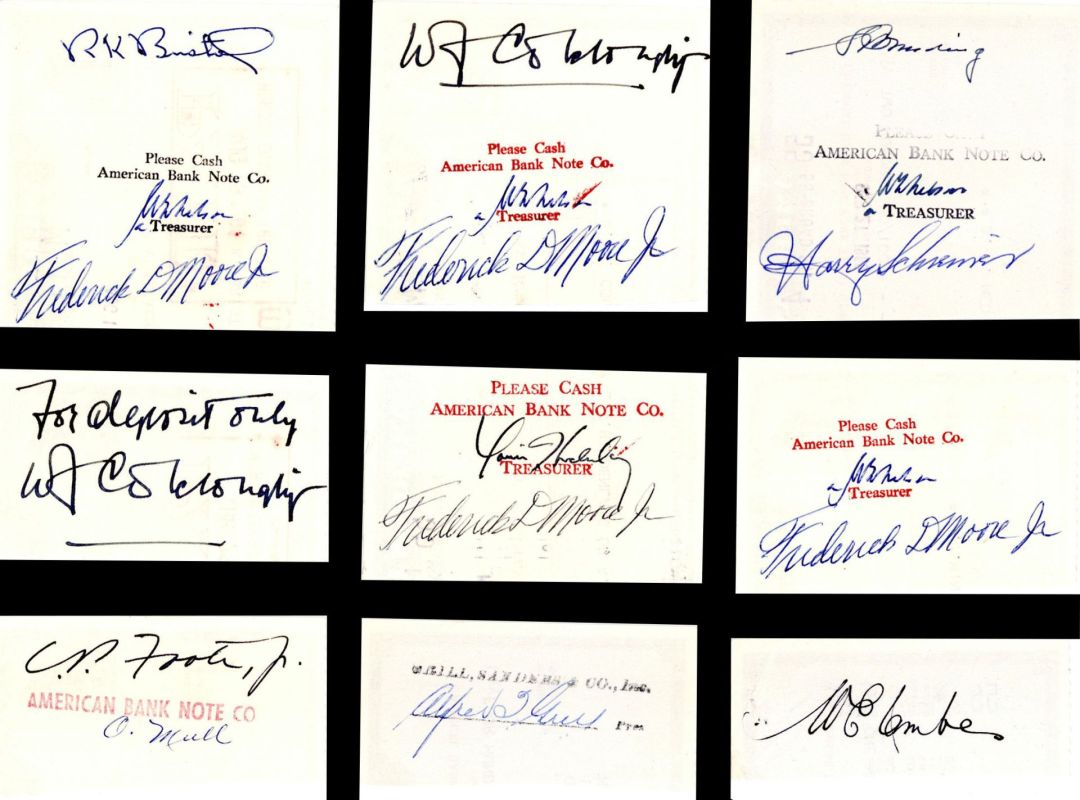 Please Cash
American Bank Note Co.
Treasurer
Frederick D Moore Jr
W F Colclough Jr
Please Cash
American Bank Note Co.
Treasurer
Frederick D Moore Jr
PLEASE CASH
AMERICAN BANK NOTE CO.
TREASURER
Harry Schreiner
For deposit only
W F Colclough Jr
PLEASE CASH
AMERICAN BANK NOTE CO.
TREASURER
Frederick D Moore Jr
Please Cash
American Bank Note Co.
Treasurer
Frederick D Moore Jr
C.P. Foote, Jr.
AMERICAN BANK NOTE CO
GRILL, SANDERS & CO., Inc.
Pres